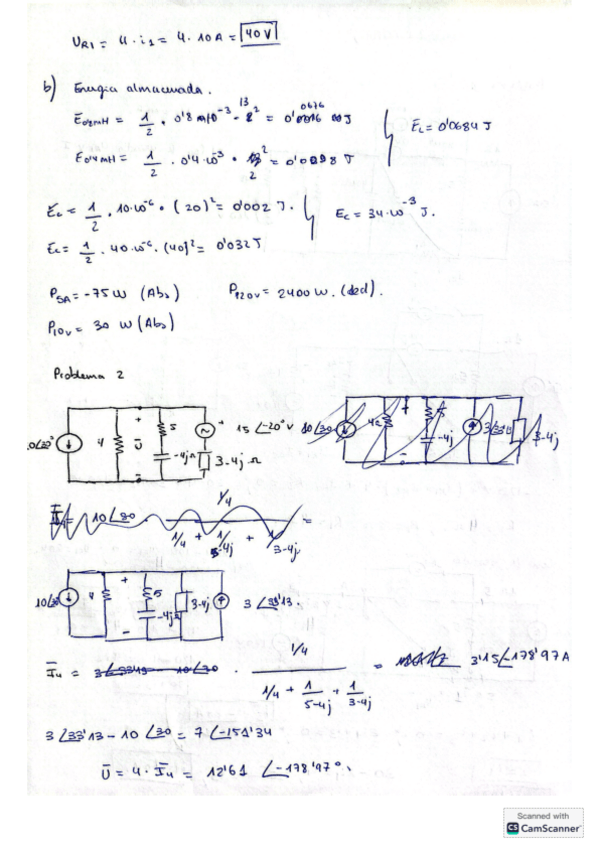 U_R1 = 4 · i₁ = 4 · 10A = 40V
b) Energia almacenada.
E_0'8mH = 1/2 · 0'8 · 10⁻³ · 13² = 0'0676 J
E_0'4mH = 1/2 · 0'4 · 10⁻³ · 2² = 0'0008 J
E_L = 0'0684 J
E_c = 1/2 · 10·10⁻⁶ · (20)² = 0'002 J.
E_c = 34·10⁻³ J.
E_c = 1/2 · 40·10⁻⁶ · (40)² = 0'032 J
P_5A = -75W (Abs) P_120V = 2400 W. (ded).
P_10V = 30 W (Abs)
Problema 2
10∠30° 4 + Ū - 5 -4jΩ + 15 ∠-20° V 3-4j Ω
10∠30 4Ω + - 5 -4j 3-4j
Ī₄ = 10∠30 · 1/4 / (1/4 + 1/5-4j + 1/3-4j) =
10∠30° 4 + - 5 -4jΩ 3-4j 3 ∠33'13.
Ī₄ = 3∠33'13 - 10∠30 · 1/4 / (1/4 + 1/5-4j + 1/3-4j) = 3'15∠-178'97 A
3∠33'13 - 10∠30 = 7∠-151'34
Ū = 4 · Ī₄ = 12'61 ∠-178'97°.
Scanned with
CS CamScanner